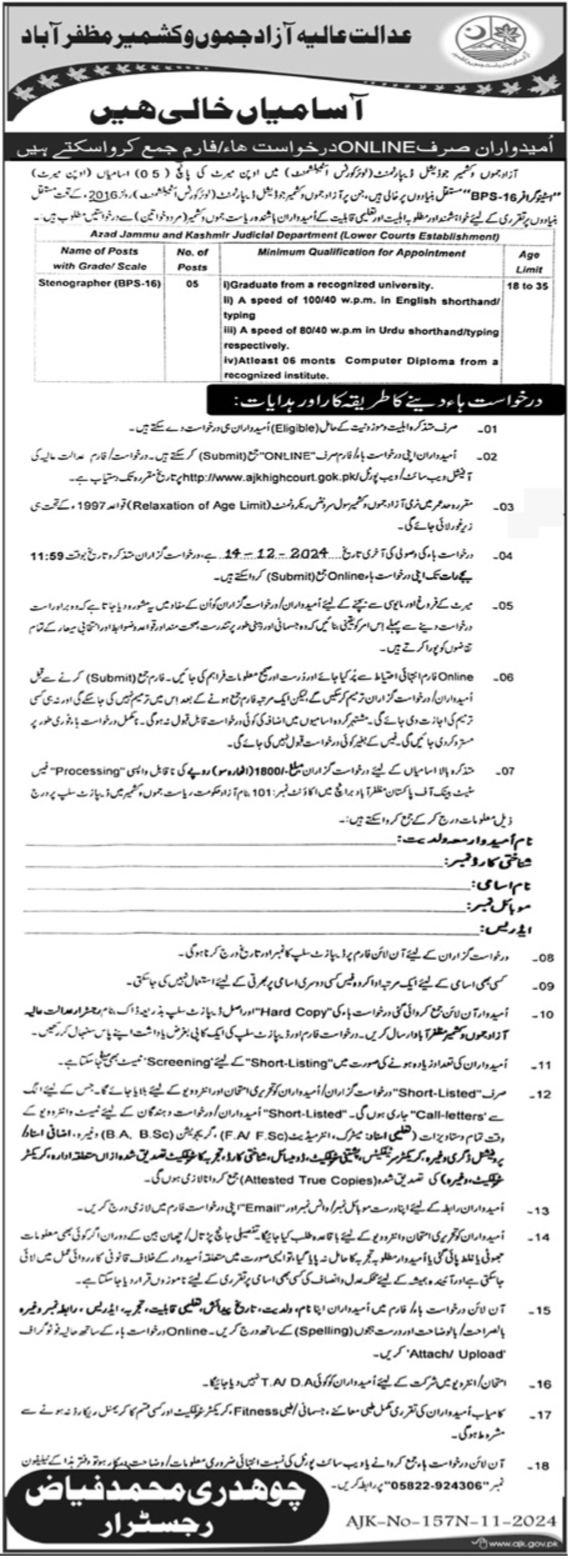 عدالت عالیہ آزاد جموں و کشمیر مظفر آباد
آسامیاں خالی ہیں
اُمیدواران صرف ONLINE درخواست ھاء/فارم جمع کرواسکتے ہیں
آزاد جموں و کشمیر جوڈیشل ڈیپارٹمنٹ (لوئر کورٹس اسٹیبلشمنٹ) میں اوپن میرٹ کی پانچ (05) اسامیاں (اوپن میرٹ)
"اسٹینوگرافر BPS-16" مستقل بنیادوں پر خالی ہیں، جن پر آزاد جموں و کشمیر جوڈیشل ڈیپارٹمنٹ (لوئر کورٹس اسٹیبلشمنٹ) رولز 2016ء کے تحت مستقل
بنیادوں پر تقرری کے لیئے خواہشمند اور مطلوبہ اہلیت اور تعلیمی قابلیت کے اُمیدواران باشندہ ریاست جموں و کشمیر (مرد و خواتین) سے درخواستیں مطلوب ہیں:۔
Azad Jammu and Kashmir Judicial Department (Lower Courts Establishment)
Name of Posts with Grade/ Scale
No. of Posts
Minimum Qualification for Appointment
Age Limit
Stenographer (BPS-16)
05
i)Graduate from a recognized university.
ii) A speed of 100/40 w.p.m. in English shorthand/
typing
iii) A speed of 80/40 w.p.m in Urdu shorthand/typing
respectively.
iv)Atleast 06 monts Computer Diploma from a
recognized institute.
18 to 35
درخواست ہاء دینے کا طریقہ کار اور ہدایات:
01۔ صرف متذکرہ اہلیت و موزونیت کے حامل (Eligible) اُمیدواران ہی درخواست دے سکتے ہیں۔
02۔ اُمیدواران اپنی درخواست ہاء/فارم صرف "ONLINE" جمع (Submit) کرسکتے ہیں۔ درخواست/فارم عدالت عالیہ کی
آفیشل ویب سائٹ/ویب پورٹل http://www.ajkhighcourt.gok.pk/ پر تاریخ مقررہ تک دستیاب ہے۔
03۔ مقررہ حد عمر میں نرمی آزاد جموں و کشمیر سول سرونٹس ریکروٹمنٹ (Relaxation of Age Limit) قواعد 1997ء کے تحت ہی
زیر غور لائی جائے گی۔
04۔ درخواست ہاء کی وصولی کی آخری تاریخ 14-12-2024 ہے، درخواست گزاران متذکرہ تاریخ بوقت 11:59
بجے رات تک اپنی درخواست ہاء Online جمع (Submit) کرواسکتے ہیں۔
05۔ میرٹ کے فروغ اور مایوسی سے بچنے کے لیئے اُمیدواران/درخواست گزاران کو اُن کے مفاد میں یہ مشورہ دیا جاتا ہے کہ وہ براہ راست
درخواست دینے سے پہلے اِس امر کو یقینی بنائیں کہ وہ جسمانی اور ذہنی طور پر تندرست و صحت مند اور قواعد و ضوابط اور انتخابی معیار کے تمام
تقاضوں کو پورا کرتے ہیں۔
06۔ Online فارم انتہائی احتیاط سے پُر کیا جائے اور دُرست اور صحیح معلومات فراہم کی جائیں۔ فارم جمع (Submit) کرنے سے قبل
اُمیدواران/درخواست گزاران ترمیم کرسکیں گے، لیکن ایک مرتبہ فارم جمع ہونے کے بعد اِس میں ترمیم نہیں کی جاسکے گی اور نہ ہی کسی
ترمیم کی اجازت دی جائے گی۔ مشتہر کردہ اسامیوں میں اضافہ کی کوئی درخواست قابل قبول نہ ہوگی۔ نامکمل درخواست ہاء فوری طور پر
مسترد کردی جائیں گی۔ فیس کے بغیر کوئی درخواست قبول نہیں کی جائے گی۔
07۔ متذکرہ بالا اسامیاں کے لیئے درخواست گزاران مبلغ -/1800 (اٹھارہ سو) روپے کی ناقابل واپسی "Processing" فیس
سٹیٹ بینک آف پاکستان مظفر آباد برانچ میں اکاؤنٹ نمبر: 101 بنام آزاد حکومت ریاست جموں و کشمیر میں ڈیپازٹ سلپ پر درج
ذیل معلومات درج کرکے جمع کرواسکتے ہیں:۔
نام اُمیدوار معہ ولدیت:
شناختی کارڈ نمبر:
نام اسامی:
موبائل نمبر:
ایڈریس:
08۔ درخواست گزاران کے لیئے آن لائن فارم پر ڈیپازٹ سلپ کا نمبر اور تاریخ درج کرنا ہوگی۔
09۔ کسی بھی اسامی کے لیئے ایک مرتبہ ادا کردہ فیس کسی دوسری اسامی پر بھرتی کے لیئے استعمال نہیں کی جاسکتی۔
10۔ اُمیدوار آن لائن جمع کروائی گئی درخواست ہاء کی "Hard Copy" اور اصل ڈیپازٹ سلپ بذریعہ ڈاک بنام رجسٹرار عدالت عالیہ
آزاد جموں و کشمیر مظفر آباد ارسال کریں۔ درخواست فارم اور ڈیپازٹ سلپ کی ایک کاپی بغرض یادداشت اپنے پاس سنبھال کر رکھیں۔
11۔ اُمیدواران کی تعداد زیادہ ہونے کی صورت میں "Short-Listing" کے لیئے 'Screening' ٹیسٹ بھی لیا جاسکتا ہے۔
12۔ صرف "Short-Listed" درخواست گزاران/اُمیدواران کو تحریری امتحان اور انٹرویو کے لیئے بلایا جائے گا۔ جس کے لیئے الگ
سے 'Call-letters' جاری ہوں گی۔ "Short-Listed" اُمیدواران/درخواست دہندگان کے لیئے ٹیسٹ و انٹرویو کے
وقت تمام دستاویزات (تعلیمی اسناد میٹرک، انٹرمیڈیٹ (F.A/ F.Sc)، گریجویشن (B.A, B.Sc) وغیرہ، اضافی اسناد/
پروفیشنل ڈگری وغیرہ، کریکٹر سرٹیفکیٹس، پشتینی سرٹیفکیٹ، ڈومیسائل، شناختی کارڈ، تجربہ کا سرٹیفکیٹ تصدیق شدہ ازاں متعلقہ ادارہ، کریکٹر
سرٹیفکیٹ، وغیرہ) کی تصدیق شدہ (Attested True Copies) جمع کروانا لازمی ہوں گی۔
13۔ اُمیدواران رابطہ کے لیئے اپنا درست موبائل نمبر/واٹس نمبر اور "Email" اپنی درخواست فارم میں لازمی درج کریں۔
14۔ اُمیدواران کو تحریری امتحان و انٹرویو کے لیئے باقاعدہ طلب کیا جائیگا۔ تفصیلی جانچ پڑتال/چھان بین کے دوران اگر کوئی بھی معلومات
جھوٹی یا غلط پائی گئی یا اُمیدوار مطلوبہ تجربہ کا حامل نہ پایا گیا، تو ایسی صورت میں متعلقہ اُمیدوار کے خلاف قانونی کارروائی عمل میں لائی
جاسکتی ہے اور آئندہ ہمیشہ کے لیئے محکمہ عدل و انصاف کی کسی بھی اسامی پر تقرری کے لیئے ناموزوں قرار دیا جاسکتا ہے۔
15۔ آن لائن درخواست ہاء/فارم میں اُمیدواران اپنا نام، ولدیت، تاریخ پیدائش، تعلیمی قابلیت، تجربہ، ایڈریس، رابطہ نمبر وغیرہ
بالصراحت/بالوضاحت اور درست ہجوں (Spelling) کے ساتھ درج کریں۔ Online درخواست ہاء کے ساتھ حالیہ فوٹو گراف
'Attach/ Upload' کریں۔
16۔ امتحان/انٹرویو میں شرکت کے لیئے اُمیدواران کو کوئی T.A/ D.A نہیں دیا جائیگا۔
17۔ کامیاب اُمیدواران کی تقرری مکمل طبی معائنے، جسمانی/طبی Fitness، کریکٹر سرٹیفکیٹ اور کسی قسم کا کریمنل ریکارڈ نہ ہونے سے
مشروط ہوگی۔
18۔ آن لائن درخواست ہاء جمع کروانے یا ویب سائٹ پورٹل کی نسبت انتہائی ضروری معلومات/وضاحت درکار ہو تو دفتر ہذا کے ٹیلیفون
نمبر "05822-924306" پر رابطہ کریں۔
چوھدری محمد فیاض
رجسٹرار
AJK-No-157N-11-2024
www.ajk.gov.pk